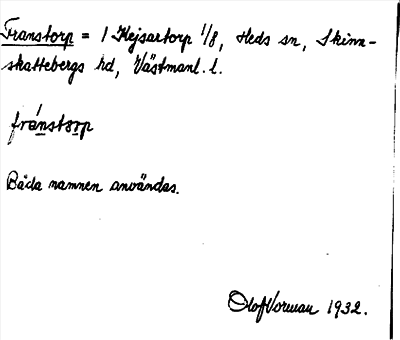 Franstorp = 1 Kejsartorp 1/8, Heds sn, Skinn-
skattebergs hd, Västmanl. l.
fránstorp
Båda namnen användas.
Olof Vorman 1932.